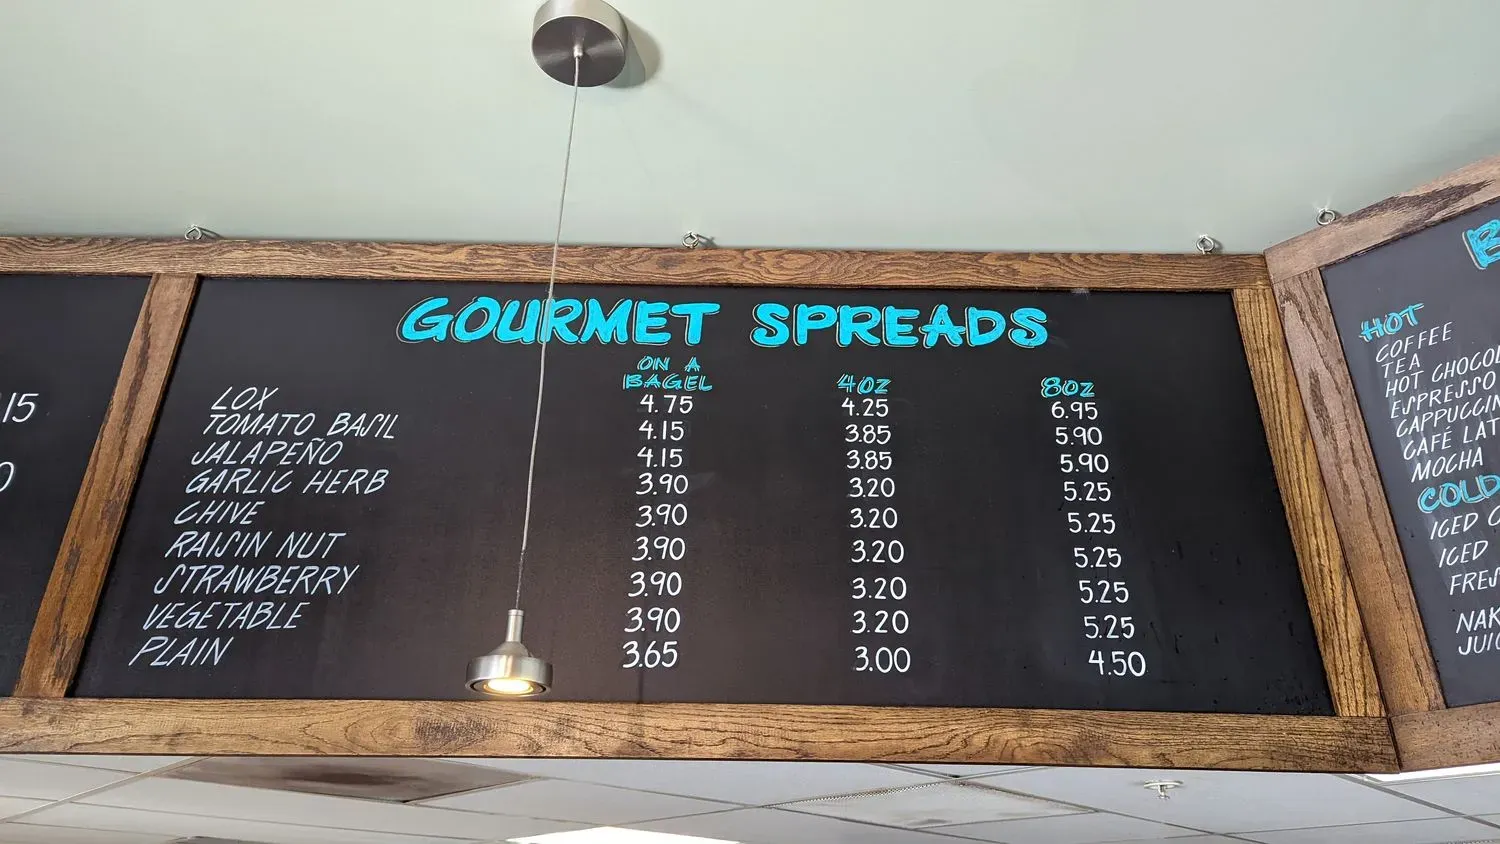 .15
GOURMET SPREADS
ON A BAGEL 4OZ 8OZ
LOX 4.75 4.25 6.95
TOMATO BASIL 4.15 3.85 5.90
JALAPEÑO 4.15 3.85 5.90
GARLIC HERB 3.90 3.20 5.25
CHIVE 3.90 3.20 5.25
RAISIN NUT 3.90 3.20 5.25
STRAWBERRY 3.90 3.20 5.25
VEGETABLE 3.90 3.20 5.25
PLAIN 3.65 3.00 4.50
HOT
COFFEE
TEA
HOT
ESPRESSO
CAFÉ
MOCHA
COLD
ICED
ICED